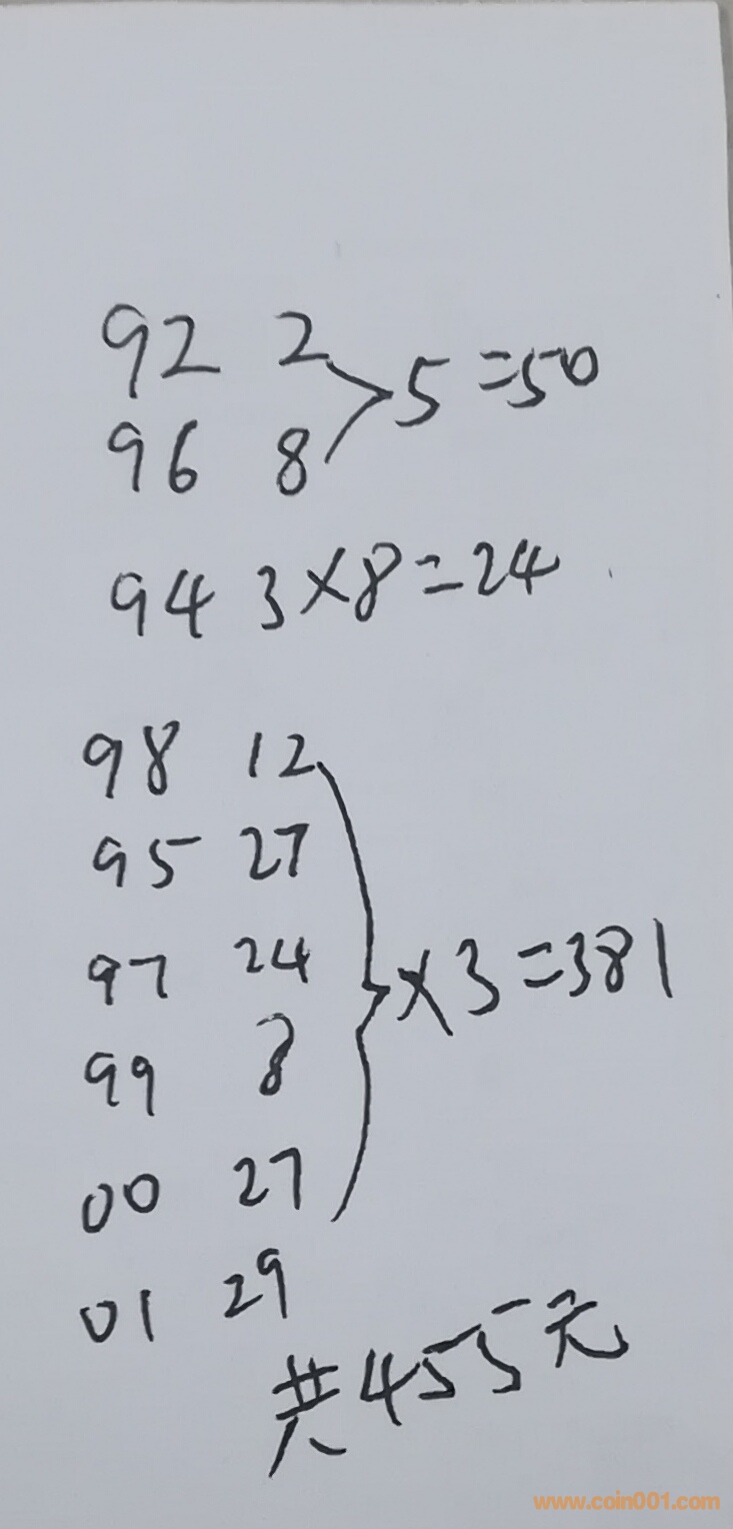 92 2
96 8
5 =50
94 3×8=24
98 12
95 27
97 24
99 8
×3=381
00 27
01 29
共455元
www.coin001.com